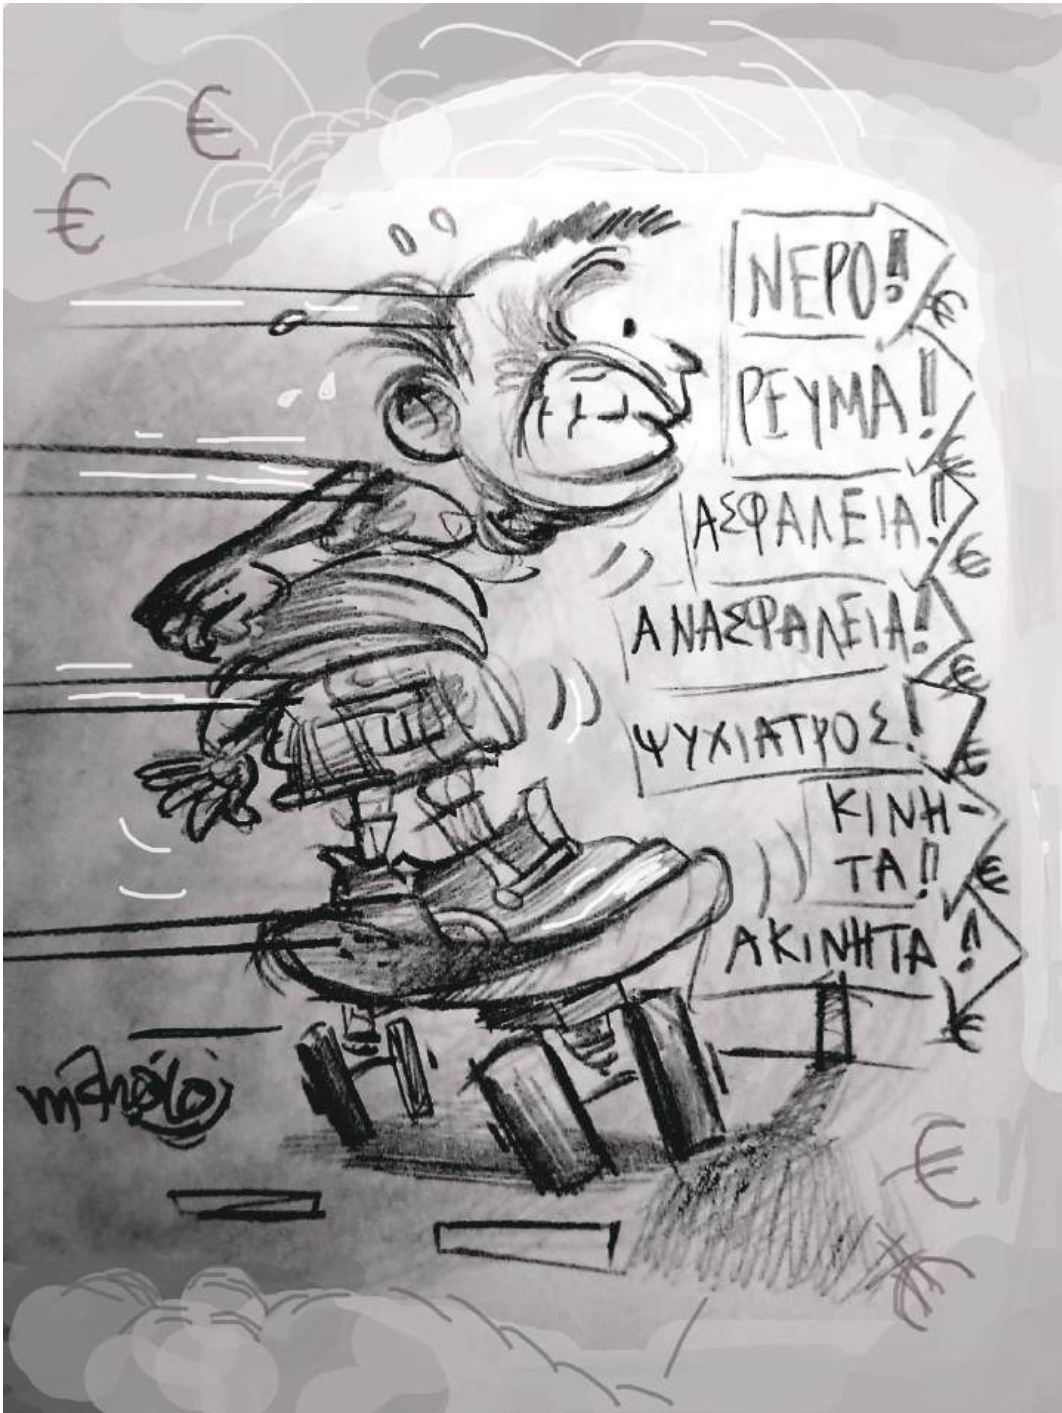 €
€
ΝΕΡΟ!!
€
ΡΕΥΜΑ!!
€
ΑΣΦΑΛΕΙΑ!!
€
ΑΝΑΣΦΑΛΕΙΑ!
€
ΨΥΧΙΑΤΡΟΣ!
€
ΚΙΝΗ-
ΤΑ!!
€
ΑΚΙΝΗΤΑ!
€
€
€